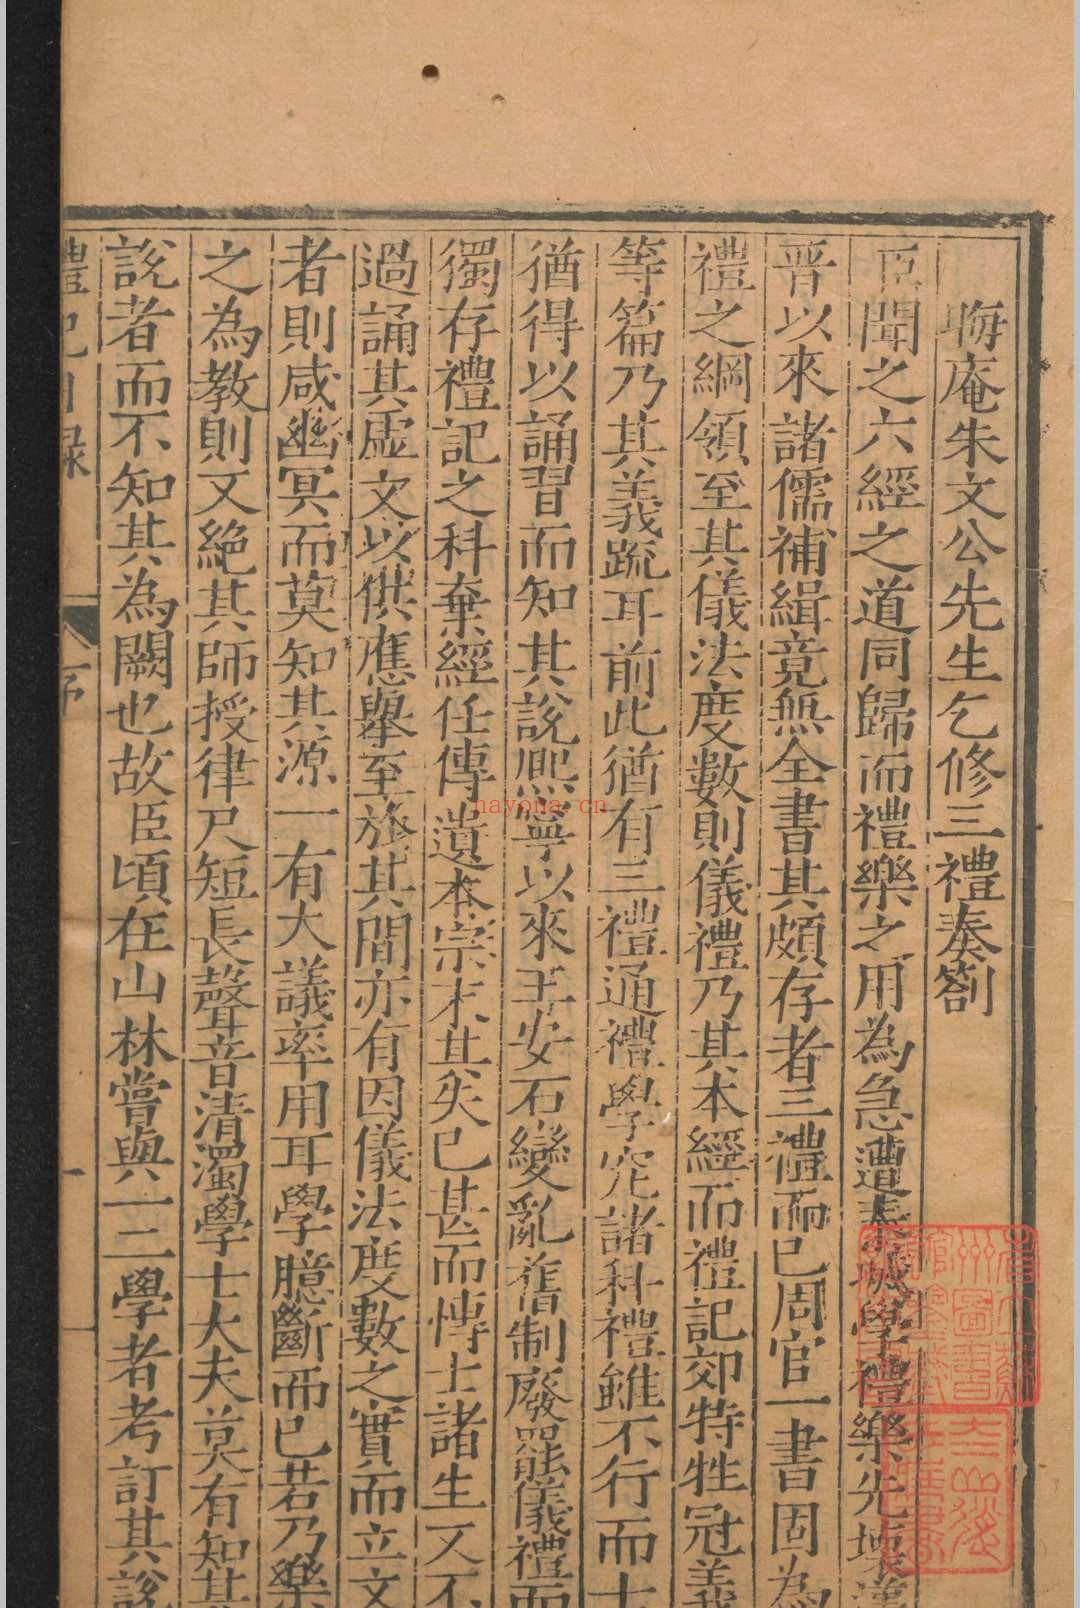 晦庵朱文公先生乞修三禮奏劄
臣聞之六經之道同歸而禮樂之用為急遭秦滅學禮樂先壞漢
晉以來諸儒補緝竟無全書其頗存者三禮而已周官一書固為
禮之綱領至其儀法度數則儀禮乃其本經而禮記郊特牲冠義
等篇乃其義疏耳前此猶有三禮通禮學究諸科禮雖不行而士
猶得以誦習而知其說熈寧以來王安石變亂舊制廢罷儀禮而
獨存禮記之科棄經任傳遺本宗末其失已甚而慱士諸生又不
過誦其虛文以供應舉至於其間亦有因儀法度數之實而立文
者則咸幽冥而莫知其源一有大議率用耳學臆斷而已若乃樂
之為教則又絕其師授律尺短長聲音清濁學士大夫莫有知其
說者而不知其為闕也故臣頃在山林嘗與一二學者考訂其說
禮記目録
序
一
nayona.cn